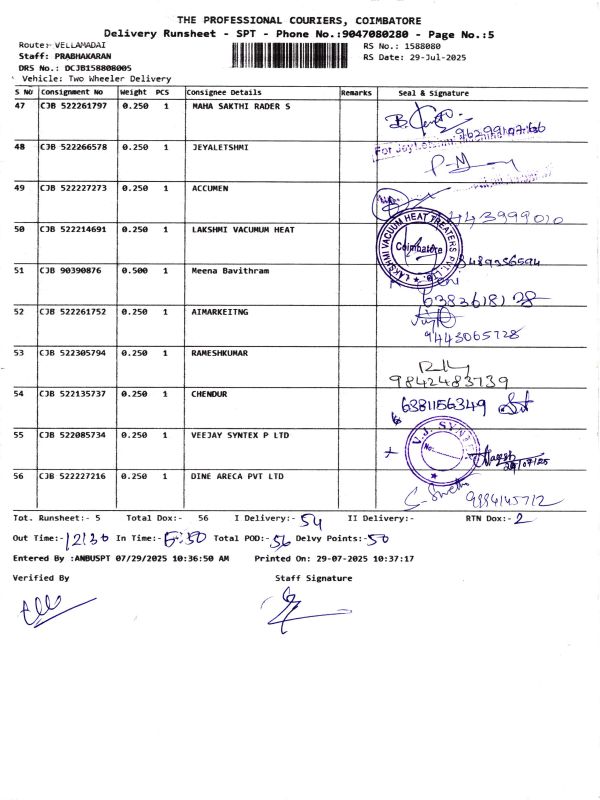 THE PROFESSIONAL COURIERS, COIMBATORE
Delivery Runsheet - SPT - Phone No.:9047080280 - Page No.:5
Route: VELLAMADAI RS No.: 1588080
Staff: PRABHAKARAN RS Date: 29-Jul-2025
DRS No.: DCJB158808005
Vehicle: Two Wheeler Delivery
S NO Consignment No Weight PCS Consignee Details Remarks Seal & Signature
47 CJB 522261797 0.250 1 MAHA SAKTHI RADER S
48 CJB 522266578 0.250 1 JEYALETSHMI
49 CJB 522227273 0.250 1 ACCUMEN
50 CJB 522214691 0.250 1 LAKSHMI VACUMUM HEAT
LAKSHMI VACUUM HEAT TREATERS PVT. LTD.
Coimbatore
51 CJB 90390876 0.500 1 Meena Bavithram
6383618128
52 CJB 522261752 0.250 1 AIMARKEITNG
9443065728
53 CJB 522305794 0.250 1 RAMESHKUMAR
9842483739
54 CJB 522135737 0.250 1 CHENDUR 6381156349
55 CJB 522085734 0.250 1 VEEJAY SYNTEX P LTD
29/07/25
56 CJB 522227216 0.250 1 DINE ARECA PVT LTD
9984145712
Tot. Runsheet:- 5 Total Dox:- 56 I Delivery:- 54 II Delivery:- RTN Dox:- 2
Out Time:- 12:30 In Time:- 5:50 Total POD:- 56 Delvy Points:- 50
Entered By :ANBUSPT 07/29/2025 10:36:50 AM Printed On: 29-07-2025 10:37:17
Verified By Staff Signature